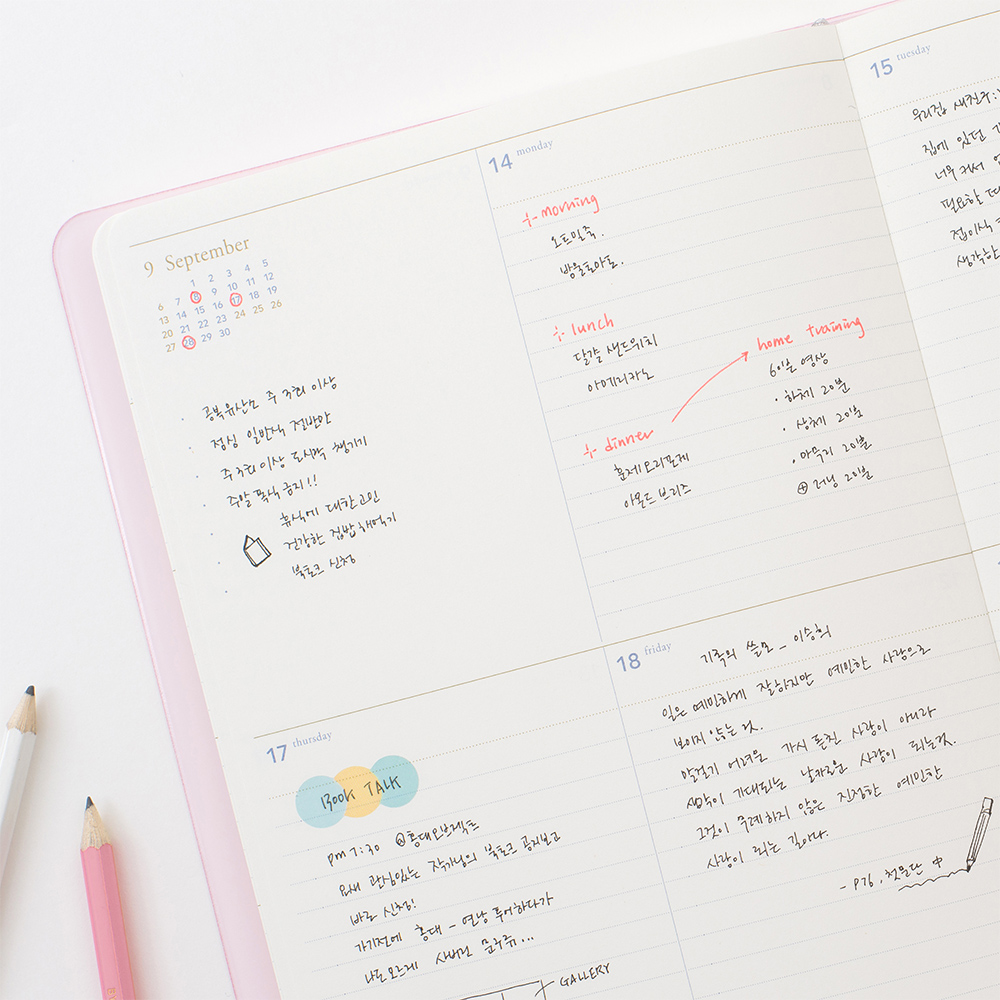 9 September
1 2 3 4 5
6 7 8 9 10 11 12
13 14 15 16 17 18 19
20 21 22 23 24 25 26
27 28 29 30
공복유산소 주 3회 이상
점심 일반식 절반만
주 3회 이상 도시락 챙기기
주말 폭식 금지!!
휴식에 대한 고민
건강한 집밥 해먹기
북토크 신청
14 monday
+ morning
오트밀죽.
방울토마토.
+ lunch
달걀 샌드위치
아메리카노
+ dinner
훈제오리포케
아몬드 브리즈
home training
60분 영상
· 하체 20분
· 상체 20분
· 마무리 20분
⊕ 러닝 20분
15 tuesday
우리집
집에 있던
너무 커서
필요할 때
접이식
생각한
17 thursday
BOOK TALK
pm 7:30 @홍대오브젝트
요새 관심있는 작가님의 북토크 공지보고
바로 신청!
가기전에 홍대 - 연남 투어하다가
나도모르게
GALLERY
18 friday
기록의 쓸모 _ 이승희
일은 예민하게 잘하지만 예민한 사람으로
보이지 않는 것.
말걸기 어려운 가시 돋친 사람이 아니라
생각이 기대되는 날카로운 사람이 되는것.
그것이 무례하지 않은 진정한 예민한
사람이 되는 길이다.
- P76, 첫문단 中